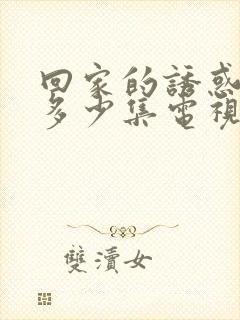 回家的誘惑
多少集電視
雙瀆女